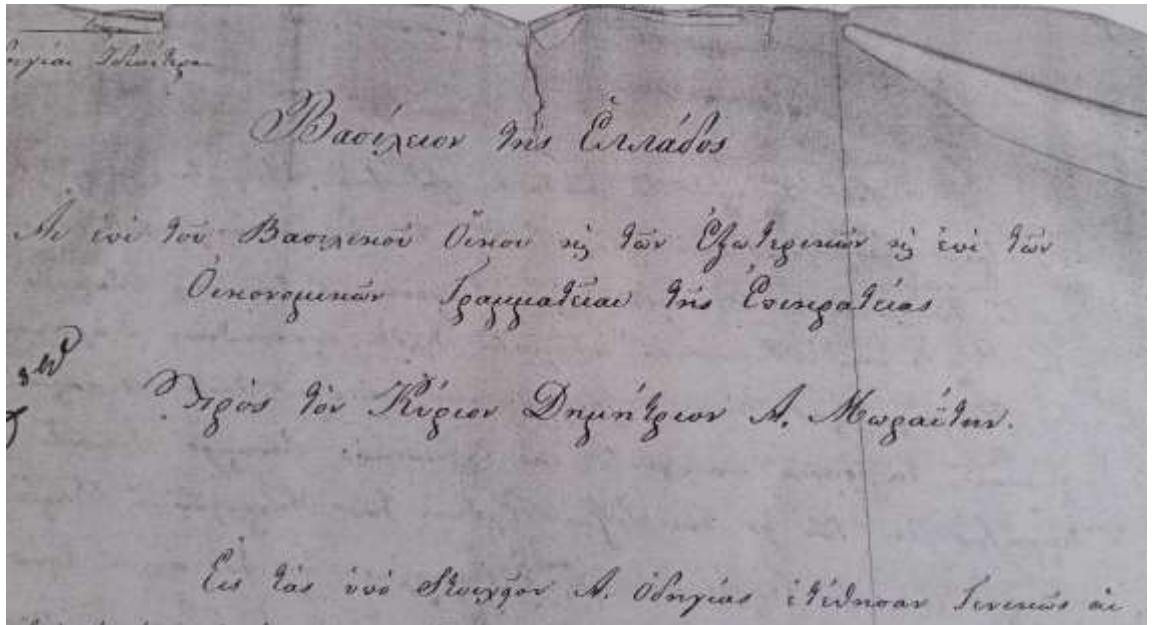 Βασίλειον τῆς Ἑλλάδος
Αἱ ἐπὶ τοῦ Βασιλικοῦ Οἴκου καὶ τῶν Ἐξωτερικῶν καὶ ἐπὶ τῶν
Οἰκονομικῶν Γραμματεῖαι τῆς Ἐπικρατείας
Πρὸς τὸν Κύριον Δημήτριον Α. Μωραΐτην.
Εἰς τὰς ὑπὸ Στοιχεῖον Α. Ὁδηγίας ἐτέθησαν Γενικῶς αἱ